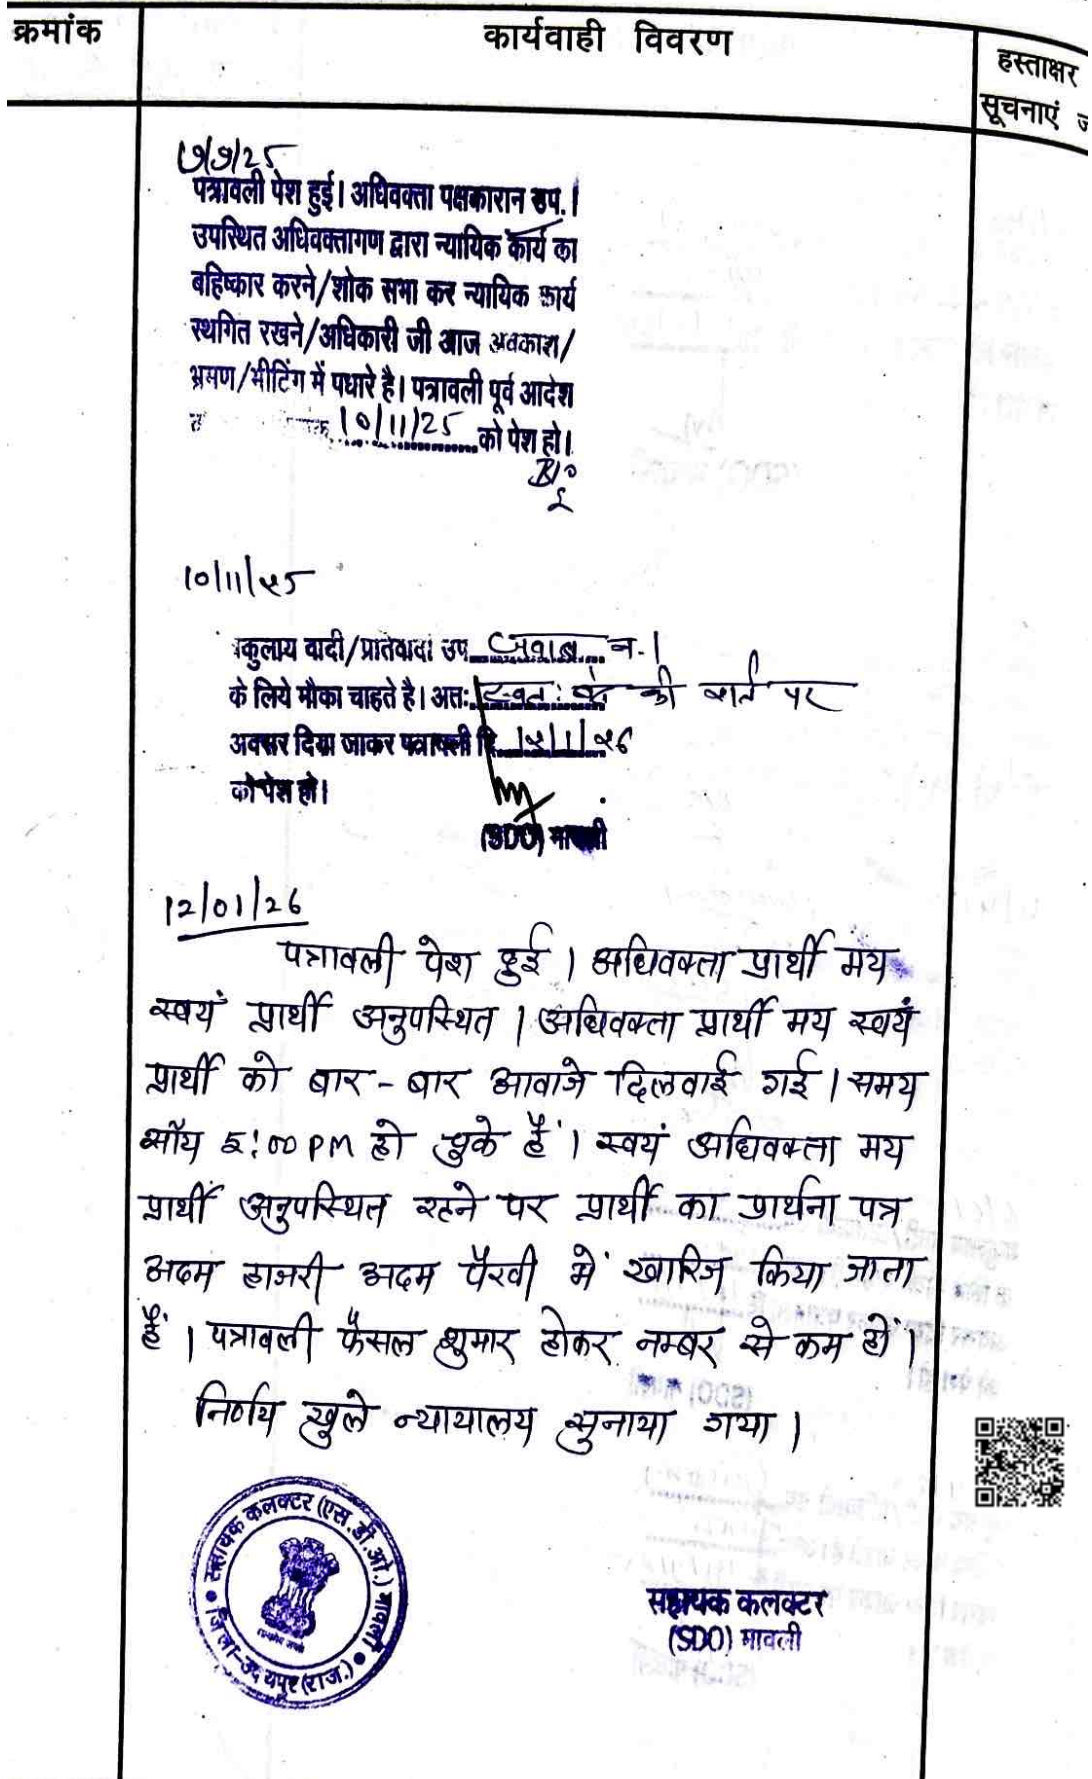 क्रमांक
कार्यवाही विवरण
हस्ताक्षर
सूचनाएं
9/25
पत्रावली पेश हुई। अधिवक्ता पक्षकारान उप.।
उपस्थित अधिवक्तागण द्वारा न्यायिक कार्य का
बहिष्कार करने/शोक सभा कर न्यायिक कार्य
स्थगित रखने/अधिकारी जी आज अवकाश/
भ्रमण/मीटिंग में पधारे है। पत्रावली पूर्व आदेश
10/11/25 को पेश हो।
10/11/25
वादी/प्रतिवादी उप जवाब
के लिये मौका चाहते है। अतः की शर्त पर
अवसर दिया जाकर पत्रावली दि. 12/1/26
को पेश हो।
(SDO) मावली
12/01/26
पत्रावली पेश हुई । अधिवक्ता प्रार्थी मय
स्वयं प्रार्थी अनुपस्थित । अधिवक्ता प्रार्थी मय स्वयं
प्रार्थी को बार-बार आवाजे दिलवाई गई । समय
सॉय 5:00 PM हो चुके हैं । स्वयं अधिवक्ता मय
प्रार्थी अनुपस्थित रहने पर प्रार्थी का प्रार्थना पत्र
अदम हाजरी अदम पैरवी में खारिज किया जाता
हैं । पत्रावली फैसल शुमार होकर नम्बर से कम हों ।
निर्णय खुले न्यायालय सुनाया गया ।
सहायक कलक्टर (एस.डी.ओ.) मावली
जिला-उदयपुर (राज.)
सहायक कलक्टर
(SDO) मावली